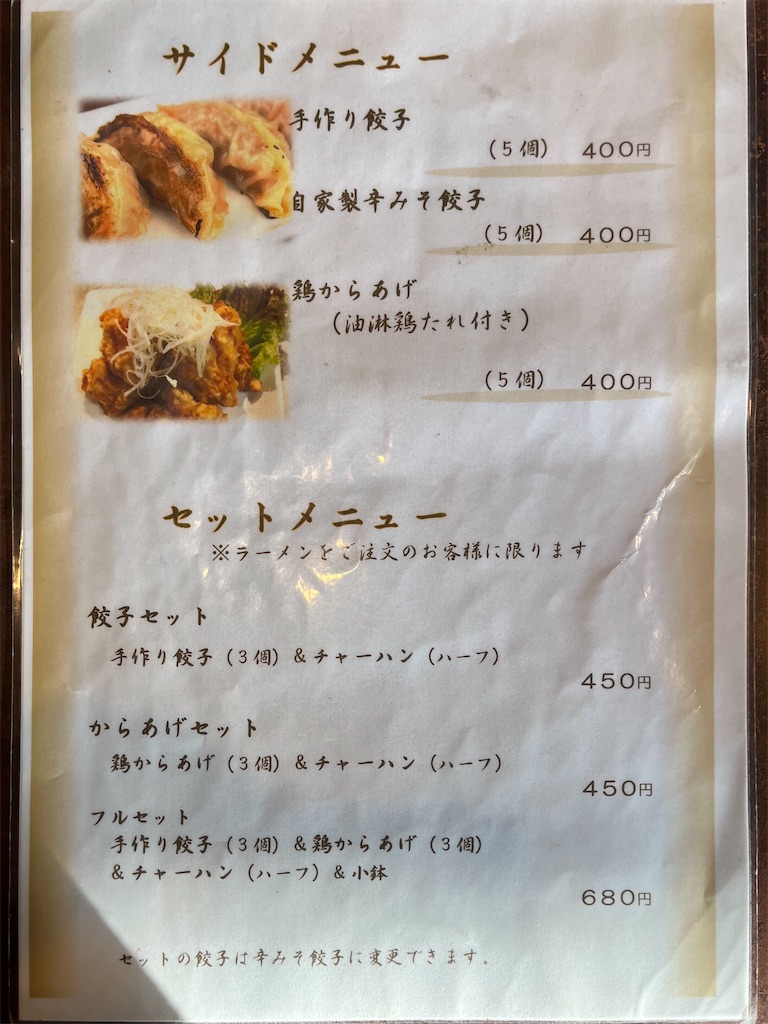 サイドメニュー
手作り餃子
(5個) 400円
自家製辛みそ餃子
(5個) 400円
鶏からあげ
(油淋鶏たれ付き)
(5個) 400円
セットメニュー
※ラーメンをご注文のお客様に限ります
餃子セット
手作り餃子(3個)&チャーハン(ハーフ)
450円
からあげセット
鶏からあげ(3個)&チャーハン(ハーフ)
450円
フルセット
手作り餃子(3個)&鶏からあげ(3個)
&チャーハン(ハーフ)&小鉢
680円
セットの餃子は辛みそ餃子に変更できます。